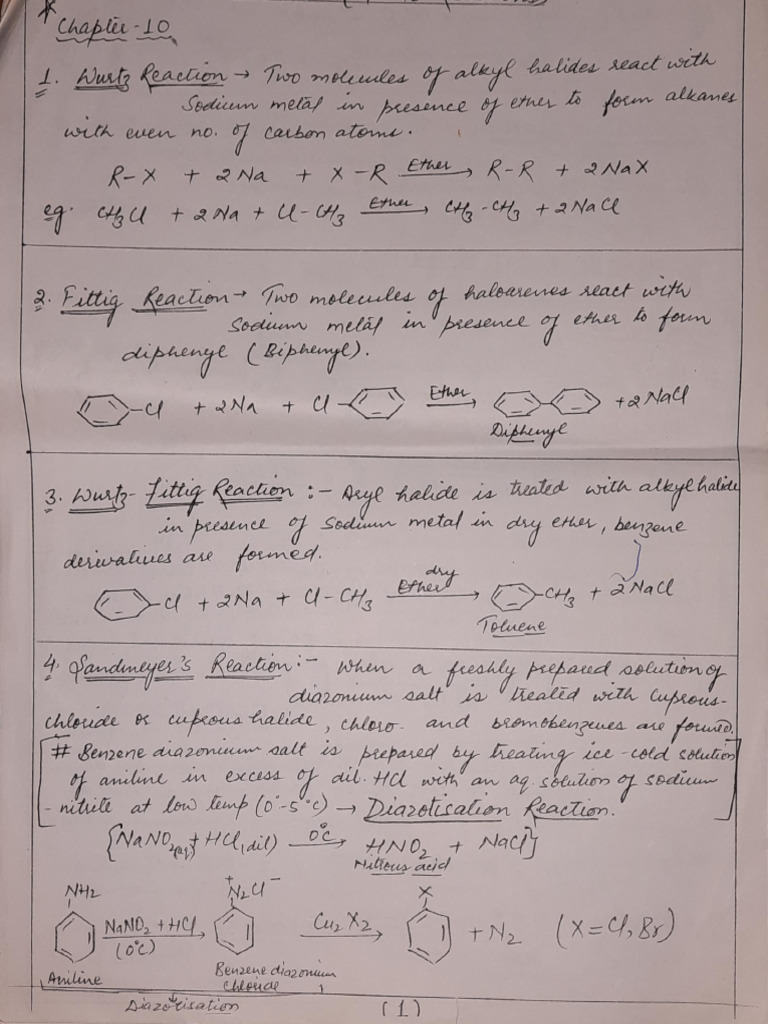 Chapter-10
1. Wurtz Reaction → Two molecules of alkyl halides react with
Sodium metal in presence of ether to form alkanes
with even no. of carbon atoms.
R-X + 2Na + X-R Ether→ R-R + 2NaX
eg. CH3Cl + 2Na + Cl-CH3 Ether→ CH3-CH3 + 2NaCl
2. Fittig Reaction → Two molecules of haloarenes react with
Sodium metal in presence of ether to form
diphenyl (Biphenyl).
-Cl + 2Na + Cl- Ether→ + 2NaCl
Diphenyl
3. Wurtz-Fittig Reaction :- Aryl halide is treated with alkyl halide
in presence of Sodium metal in dry ether, benzene
derivatives are formed.
-Cl + 2Na + Cl-CH3 dry Ether→ -CH3 + 2NaCl
Toluene
4. Sandmeyer's Reaction :- When a freshly prepared solution of
diazonium salt is treated with Cuprous-
chloride or cuprous halide, chloro- and bromobenzenes are formed.
[# Benzene diazonium salt is prepared by treating ice-cold solution
of aniline in excess of dil. HCl with an aq. solution of sodium
-nitrite at low temp (0°-5°C) → Diazotisation Reaction.]
{NaNO2(aq.) + HCl(dil) 0°C→ HNO2 + NaCl}
Nitrous acid
NH2 N2Cl X
NaNO2 + HCl (0°C) Cu2X2 + N2 (X=Cl, Br)
Aniline Benzene diazonium
chloride
Diazotisation (1)